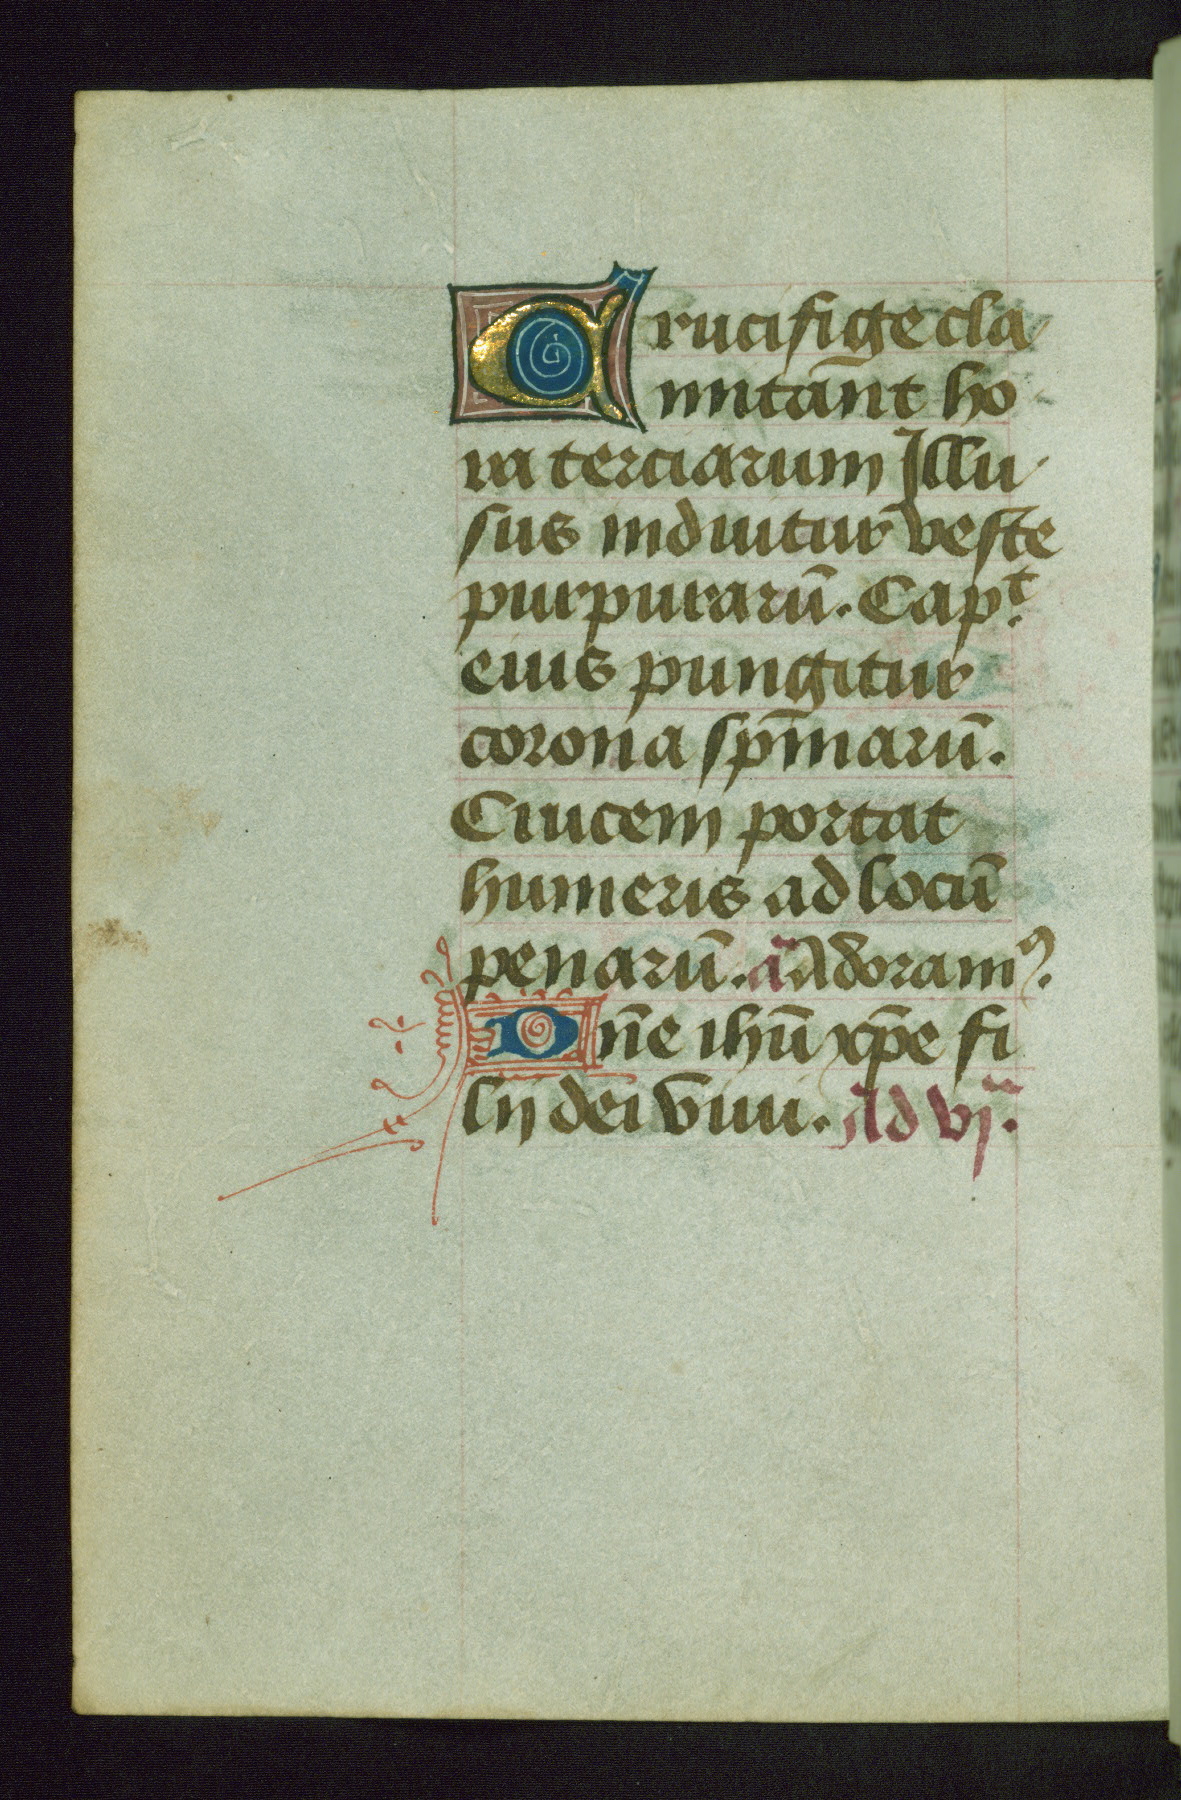 Crucifige cla
mitant ho
ra terciarum Illu
sus induitur veste
purpurarū. Capt
eius pungitur
corona spīnarū.
Crucem portat
humeris ad locū
penarū. añ Adoram⁹.
Dn̄e ihū xp̄e fi
lii dei viui. Ad vjᵃᵐ.